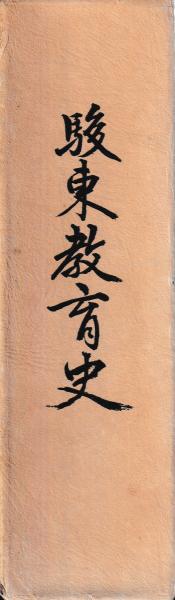 駿東教育史